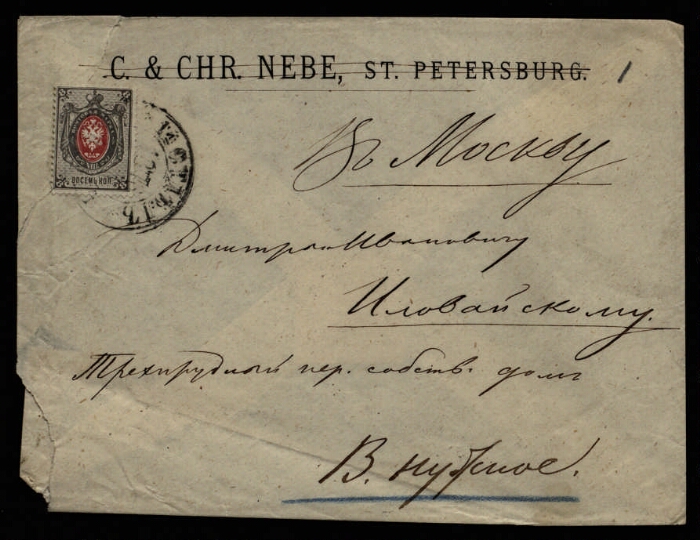 C. & CHR. NEBE, ST. PETERSBURG.
1
ВОСЕМЬ КОП.
Въ Москву
Дмитрію Ивановичу
Иловайскому.
Трехпрудный пер. собств. домъ
В. нужное.